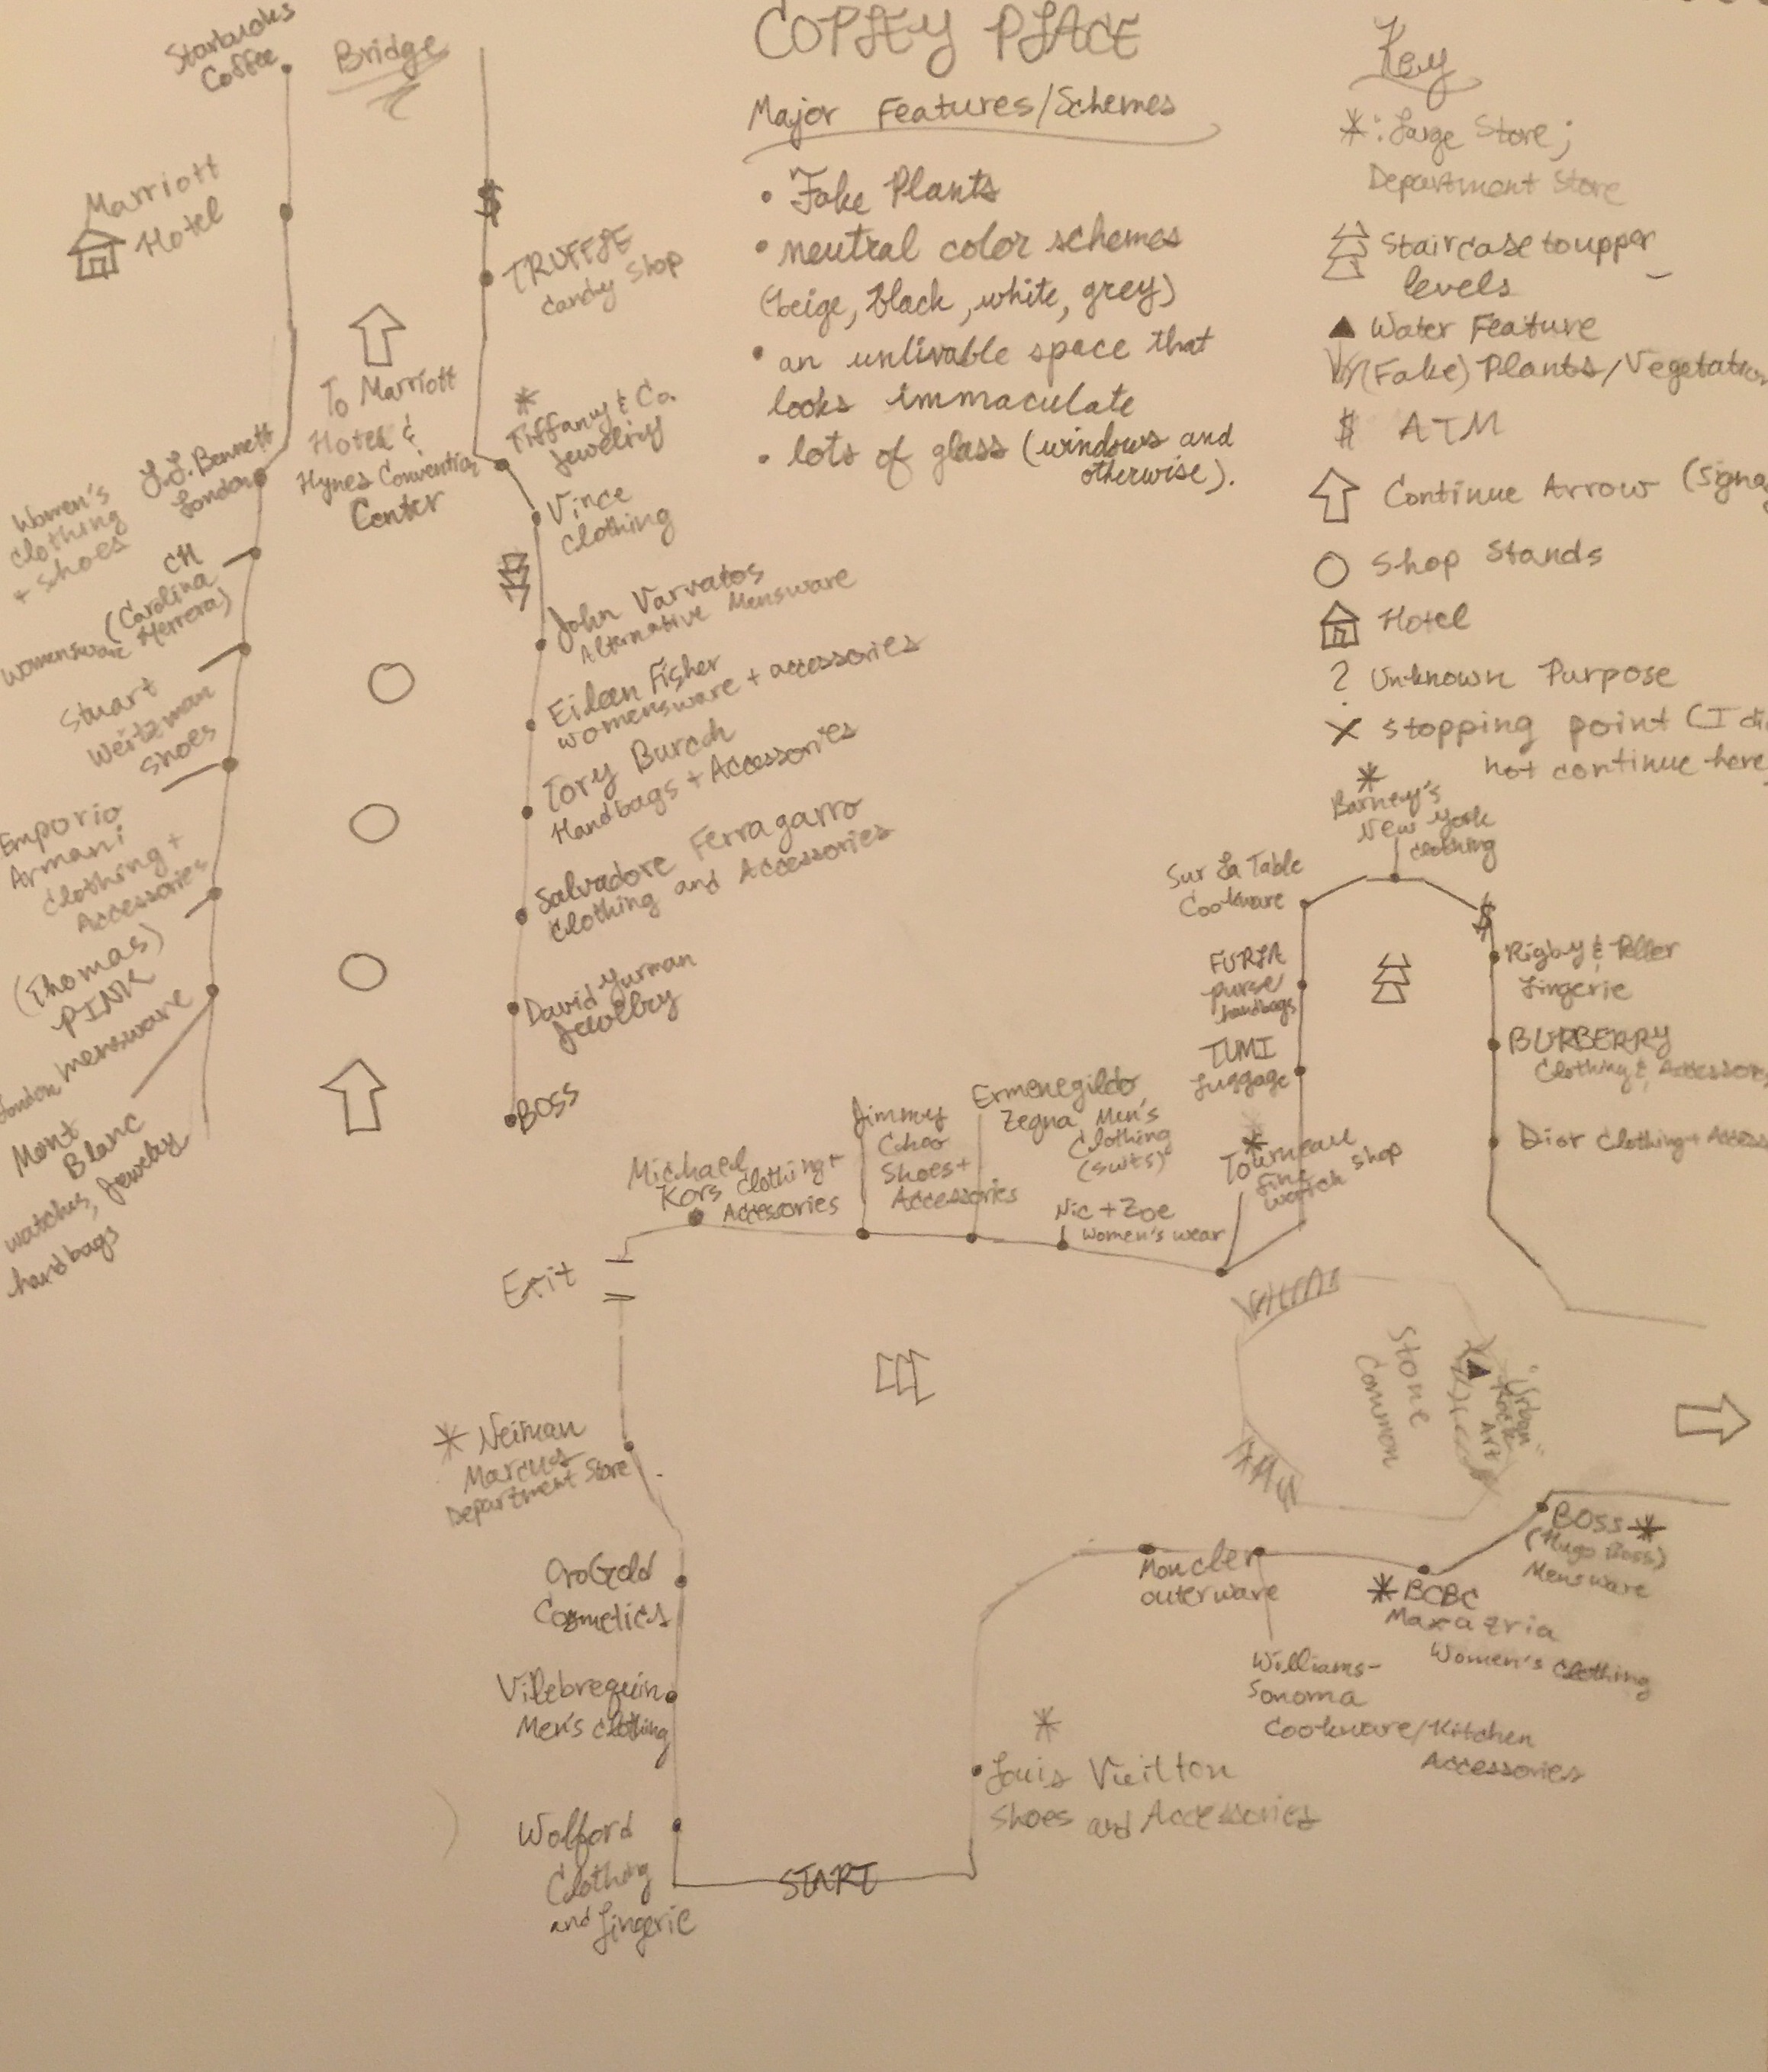 COPLEY PLACE
Major Features/Schemes
• Fake Plants
• neutral color schemes
(beige, black, white, grey)
• an unlivable space that
looks immaculate
• lots of glass (windows and
otherwise).
Key
*: Large Store;
Department Store
Staircase to upper
levels
Water Feature
(Fake) Plants/Vegetation
$ ATM
Continue Arrow (Signa
Shop Stands
Hotel
? Unknown Purpose
X Stopping point (I di
not continue here
Starbucks
Coffee
Bridge
Marriott
Hotel
$
TRUFFLE
Candy Shop
To Marriott
Hotel &
Hynes Convention
Center
*
Tiffany & Co.
Jewelry
Vince
Clothing
L.L. Bennett
London
Women's
clothing
+ shoes
CH
(Carolina
Herrera)
Womensware
Stuart
Weitzman
Shoes
Emporio
Armani
Clothing +
Accessories
(Thomas)
PINK
London
mensware
Mont
Blanc
watches, Jewelry
handbags
John Varvatos
Alternative Mensware
Eileen Fisher
womensware + accessories
Tory Burch
Handbags + Accessories
Salvadore Ferragarro
Clothing and Accessories
David Yurman
Jewelry
BOSS
*
Barney's
New York
Clothing
Sur La Table
Cookware
$
FURLA
purse/
handbags
TUMI
Luggage
Rigby & Peller
Lingerie
BURBERRY
Clothing & Accessories
Dior Clothing + Access
Michael
Kors Clothing +
Accessories
Jimmy
Choo
Shoes +
Accessories
Ermenegildo
Zegna Men's
Clothing
(suits)
Nic + Zoe
Women's wear
*
Tourneau
fine
watch shop
Exit
Stone
Common
"Urban"
Rock
Art
* Neiman
Marcus
Department Store
OroGold
Cosmetics
Vilebrequin
Men's Clothing
Wolford
Clothing
and Lingerie
START
*
Louis Vuilton
Shoes and Accessories
Moncler
outerware
Williams-
Sonoma
Cookware/Kitchen
Accessories
* BCBC
Maxazria
Women's Clothing
BOSS *
(Hugo Boss)
Mensware